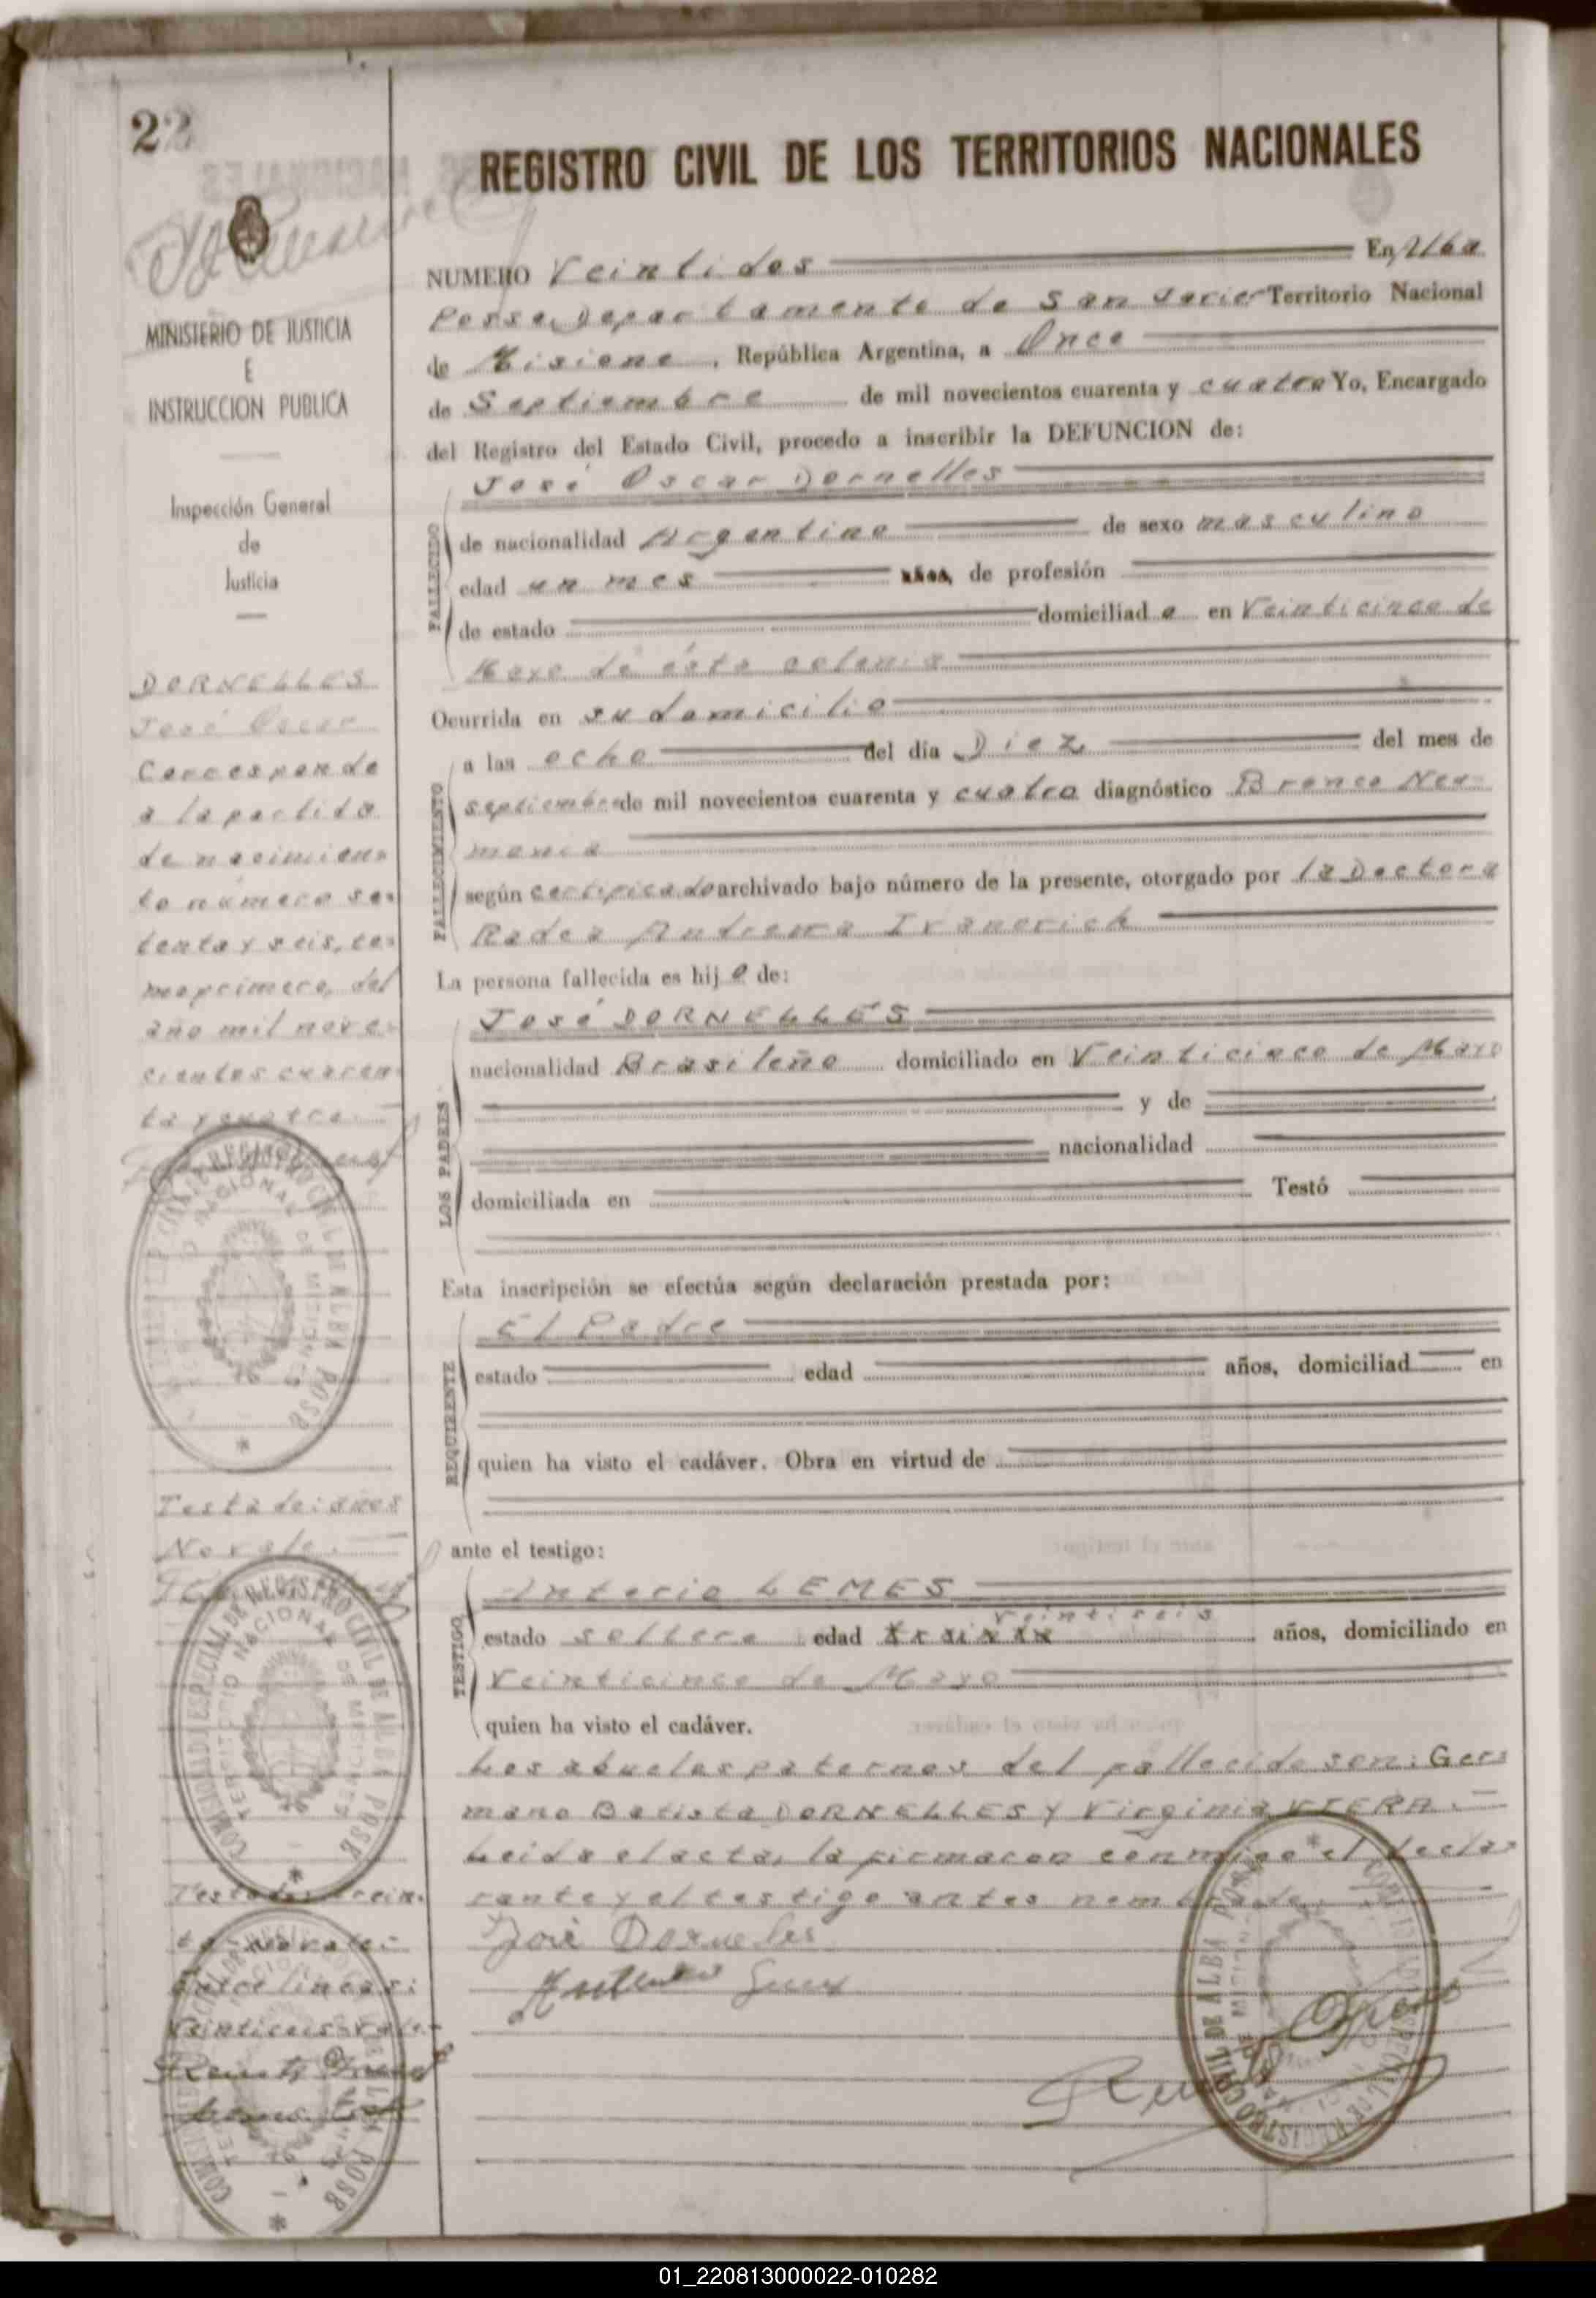 22
REGISTRO CIVIL DE LOS TERRITORIOS NACIONALES
MINISTERIO DE JUSTICIA
E
INSTRUCCION PUBLICA
Inspección General
de
Justicia
DORNELLES
José Oscar
Corresponde
a la partida
de nacimien-
to número se-
tenta y seis, to-
mo primero, del
año mil nove-
cientos cuaren-
ta y cuatro.
Testado: años
No vale.
Testado: trein-
ta no vale:
Entre lineas:
veintiseis vale.
NUMERO Veintidos En Alba
Posse, Departamento de San Javier Territorio Nacional
de Misione, República Argentina, a Once
de Septiembre de mil novecientos cuarenta y cuatro Yo, Encargado
del Registro del Estado Civil, procedo a inscribir la DEFUNCION de:
José Oscar Dornelles
FALLECIDO
de nacionalidad Argentino de sexo masculino
edad un mes años, de profesión
de estado domiciliado en Veinticinco de
Mayo de ésta colonia
Ocurrida en su domicilio
FALLECIMIENTO
a las ocho del día Diez del mes de
septiembre de mil novecientos cuarenta y cuatro diagnóstico Bronco Neu-
monia
según certificado archivado bajo número de la presente, otorgado por la Doctora
Radea Ivanovich
La persona fallecida es hijo de:
LOS PADRES
José DORNELLES
nacionalidad Brasileño domiciliado en Veinticinco de Mayo
y de
nacionalidad
domiciliada en Testó
Esta inscripción se efectúa según declaración prestada por:
REQUIRENTE
El Padre
estado edad años, domiciliad en
quien ha visto el cadáver. Obra en virtud de
ante el testigo:
TESTIGO
Antorio LEMES
veintiseis
estado soltero edad años, domiciliado en
Veinticinco de Mayo
quien ha visto el cadáver.
Los abuelos paternos del fallecido son: Ger-
mano Batista DORNELLES y Virginia VIERA.-
Leida el acta, la firmaron conmigo el decla-
rante y el testigo antes nombrado.
José Dornelles
COMISION AD ESPECIAL DE REGISTRO CIVIL DE ALBA POSE
TERRITORIO NACIONAL DE MISIONES
01_220813000022-010282